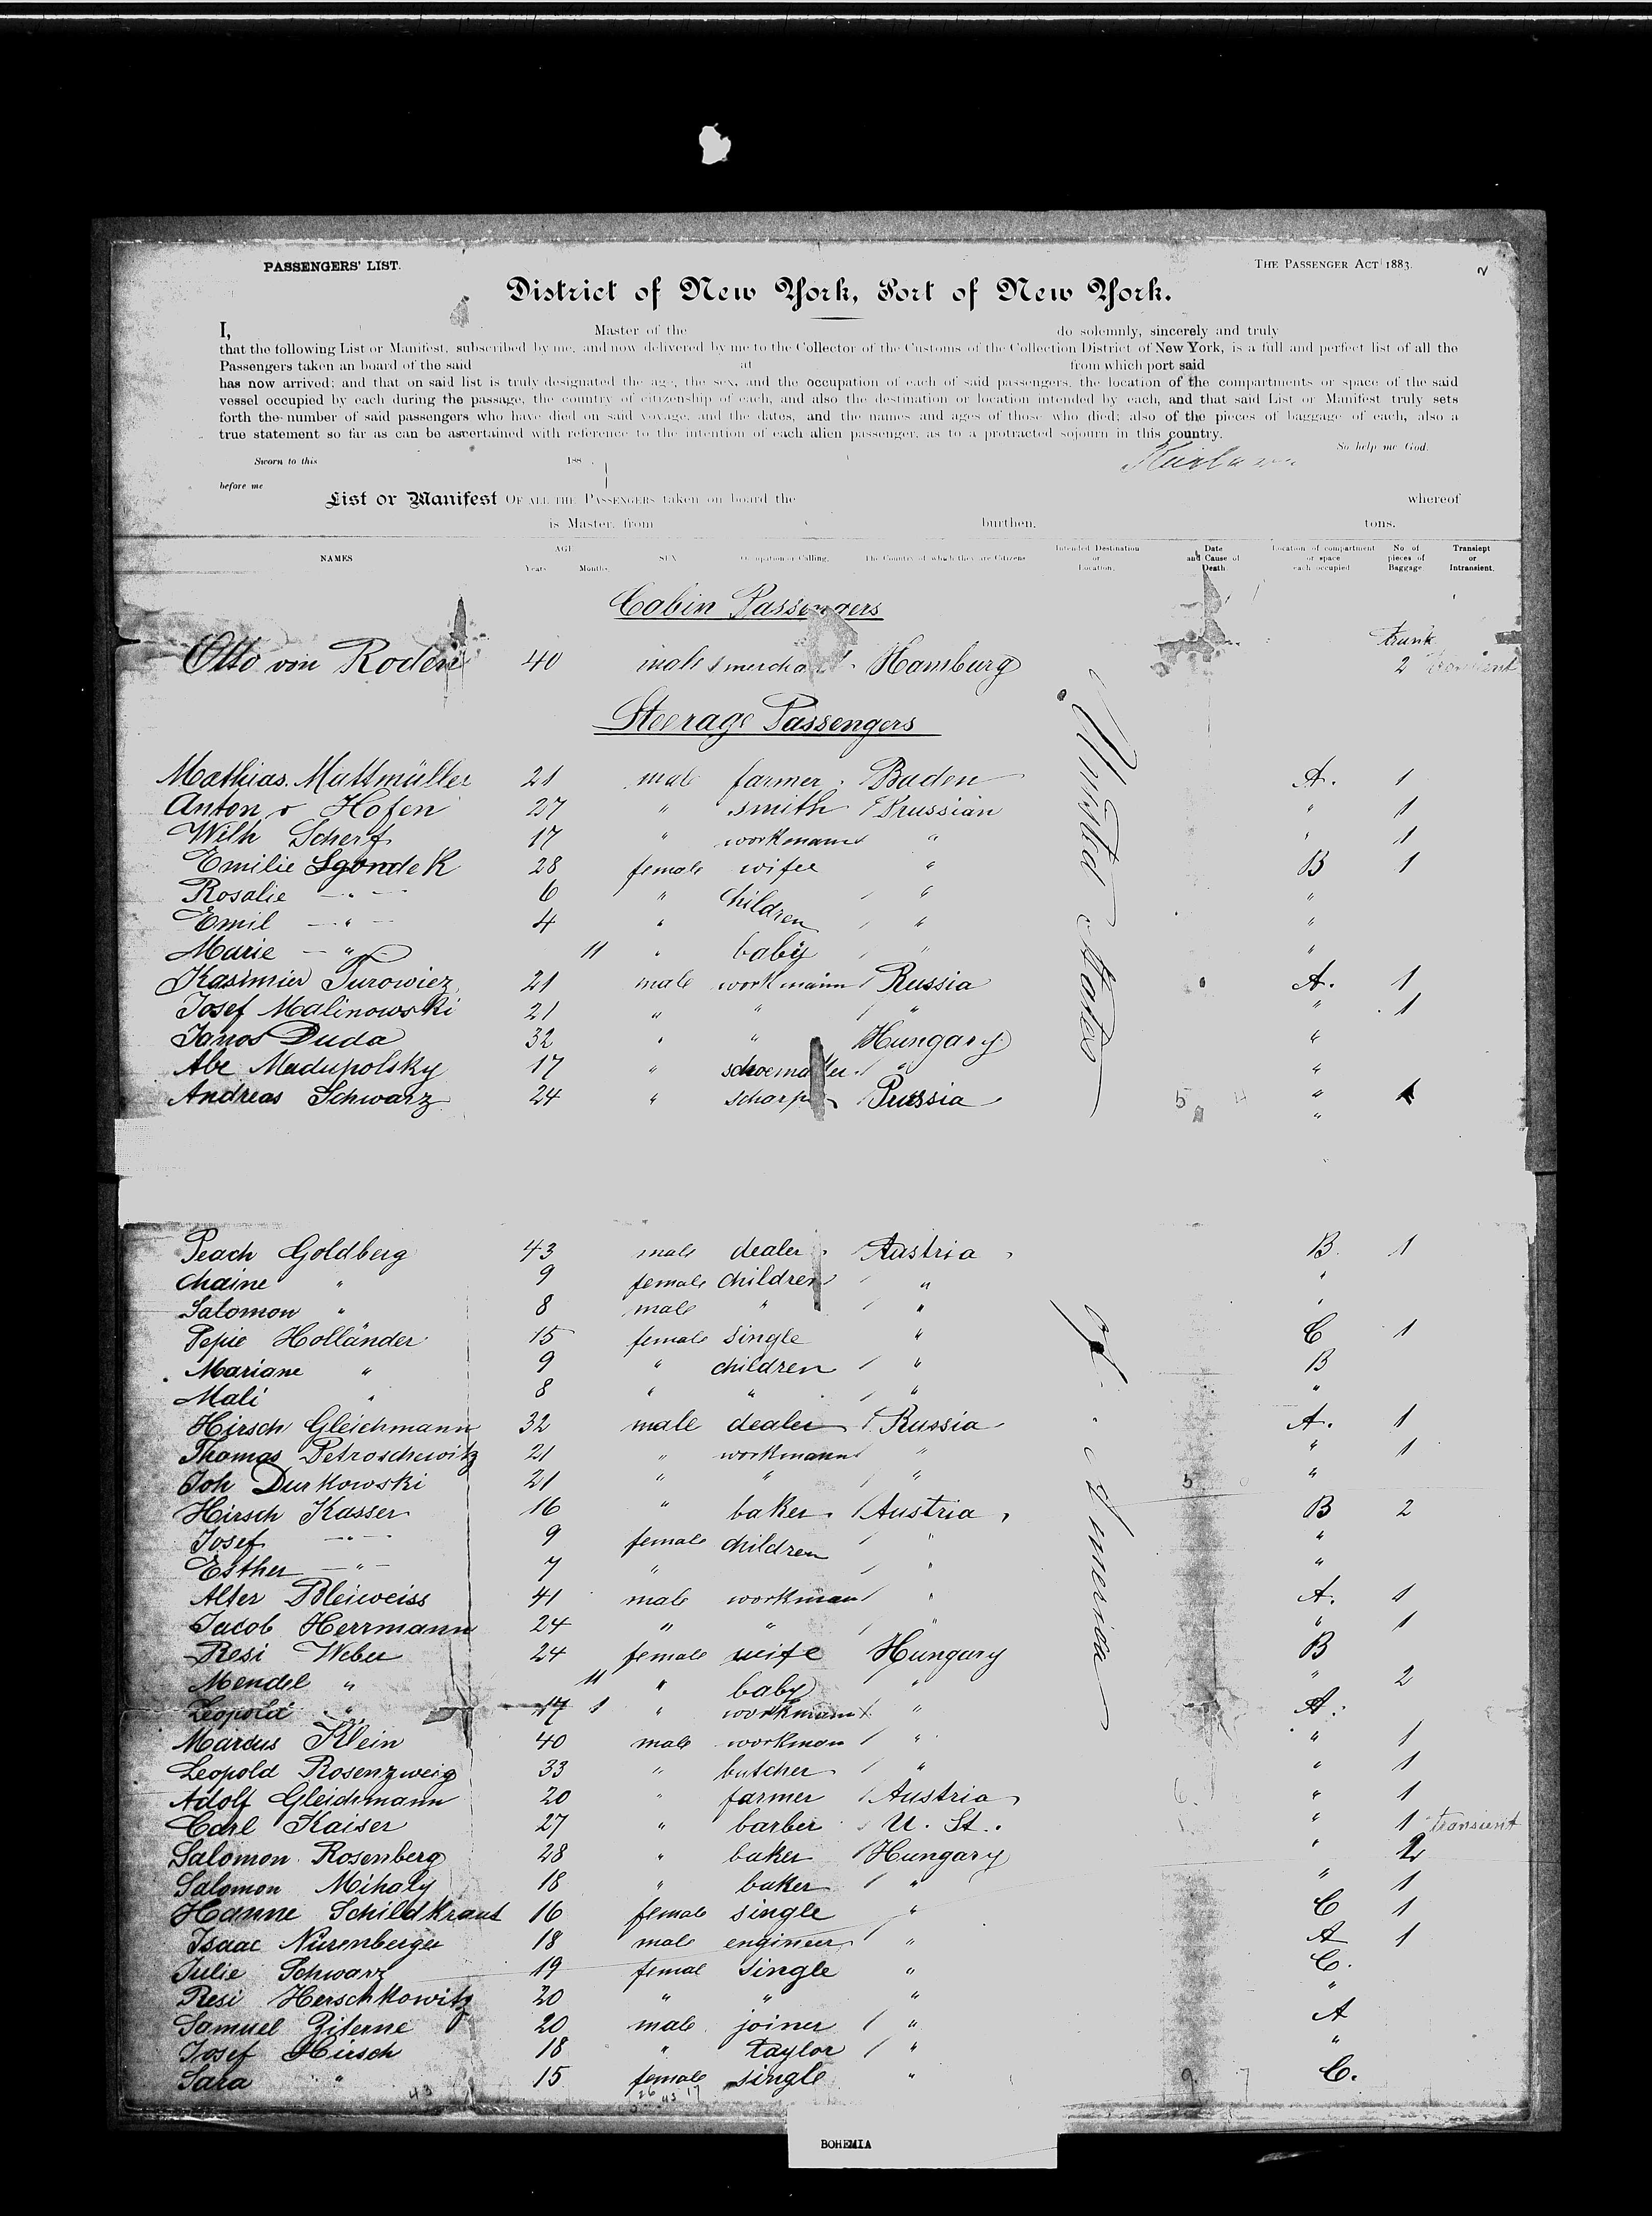 PASSENGERS' LIST. THE PASSENGER ACT 1883. 2
District of New York, Port of New York.
I, Master of the do solemnly, sincerely and truly
that the following List or Manifest, subscribed by me, and now delivered by me to the Collector of the Customs of the Collection District of New York, is a full and perfect list of all the
Passengers taken an board of the said at from which port said
has now arrived; and that on said list is truly designated the age, the sex, and the occupation of each of said passengers, the location of the compartments or space of the said
vessel occupied by each during the passage, the country of citizenship of each, and also the destination or location intended by each, and that said List or Manifest truly sets
forth the number of said passengers who have died on said voyage, and the dates, and the names and ages of those who died; also of the pieces of baggage of each, also a
true statement so far as can be ascertained with reference to the intention of each alien passenger, as to a protracted sojourn in this country.
So help me God.
Sworn to this 188
before me
List or Manifest OF ALL THE PASSENGERS taken on board the whereof
is Master, from burthen, tons.
NAMES AGE Years Months. SEX Occupation or Calling. The Country of which they are Citizens Intended Destination or Location. Date and Cause of Death. Location of compartment or space each occupied No. of pieces of Baggage Transient or Intransient.
Cabin Passengers
trunk
Otto von Roden 40 male merchant Hamburg 2 transient
Steerage Passengers
United States of America
Mathias Muttmüller 21 male farmer Baden A. 1
Anton v Hofen 27 " smith Prussian " 1
Wilh Scherf 17 " workmann " " 1
Emilie Sgondek 28 female wifee " B 1
Rosalie " 6 " children " "
Emil " 4 " " "
Marie " 11 " baby " "
Kasimier Turowicz 21 male workmann Russia A. 1
Josef Malinowski 21 " " " " 1
Janos Duda 32 " " Hungary "
Abe Madupolsky 17 " schoemaker " "
Andreas Schwarz 24 " Prussia 5 " 1
"
Peach Goldberg 43 male dealer Austria B. 1
Chaine " 9 female children " "
Salomon " 8 male " " "
Pepie Holländer 15 female single " C 1
Mariane " 9 " children " B
Mali " 8 " " " "
Hirsch Gleichmann 32 male dealer Russia A. 1
Thomas Petroschewitz 21 " workmann " " 1
Joh Durkowski 21 " " " 5 "
Hirsch Kasser 16 " baker Austria B 2
Josef " 9 female children " "
Esther " 7 " " "
Alter Bleiweiss 41 male workmann " A. 1
Jacob Herrmann 24 " " " " 1
Resi Weber 24 female wife Hungary B
Mendel " 11 " baby " " 2
Leopold " 17 1 " workmann " A.
Marcus Klein 40 male workman " " 1
Leopold Rosenzweig 33 " butcher " " 1
Adolf Gleichmann 20 " farmer Austria 6. " 1
Carl Kaiser 27 " barber U. St. " 1 transient
Salomon Rosenberg 28 " baker Hungary " 2
Salomon Mihaly 18 " baker " " 1
Hanne Schildkraut 16 female single " C 1
Isaac Nürenberger 18 male engineer " A 1
Julie Schwarz 19 femal single " C.
Resi Herschkowitz 20 " " " "
Samuel Ziterne 20 male joiner " A
Josef Hirsch 18 " taylor " "
Sara " 15 female single " 9 7 C.
43 26 17
BOHEMIA